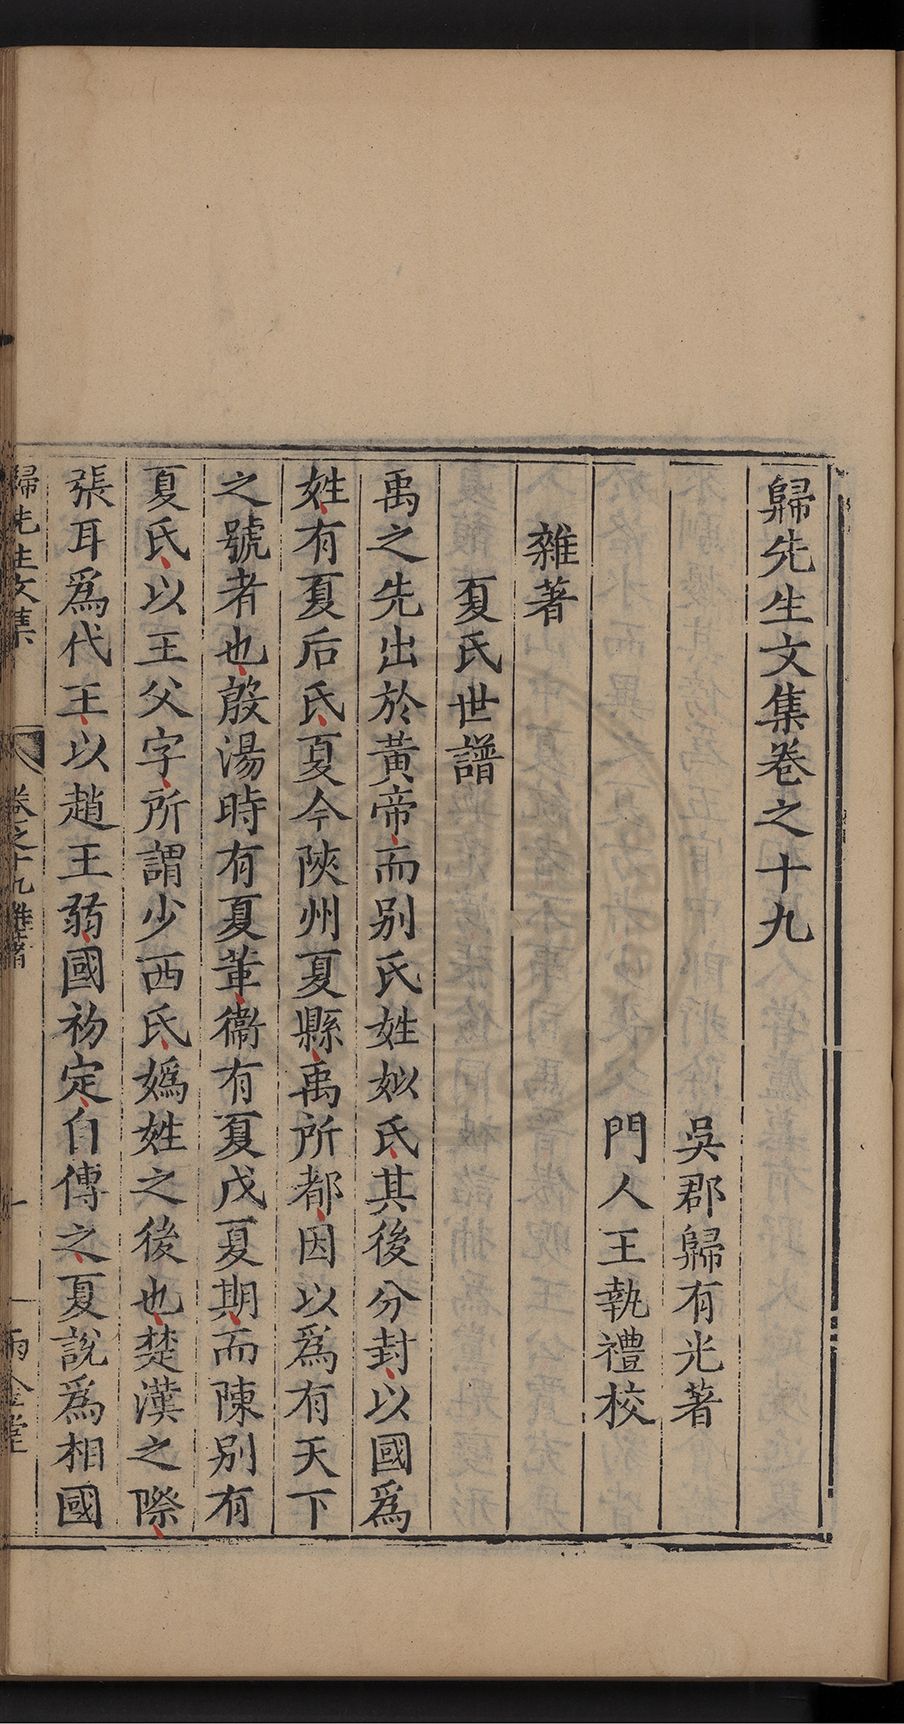 歸先生文集卷之十九
吳郡歸有光著
門人王執禮校
雜著
夏氏世譜
禹之先出於黃帝而別氏姓姒氏其後分封以國爲
姓有夏后氏夏今陝州夏縣禹所都因以爲有天下
之號者也殷湯時有夏革衞有夏戊夏期而陳別有
夏氏以王父字所謂少西氏嬀姓之後也楚漢之際
張耳爲代王以趙王弱國初定自傅之夏說爲相國
歸先生文集 卷之十九雜著 一 雨金堂